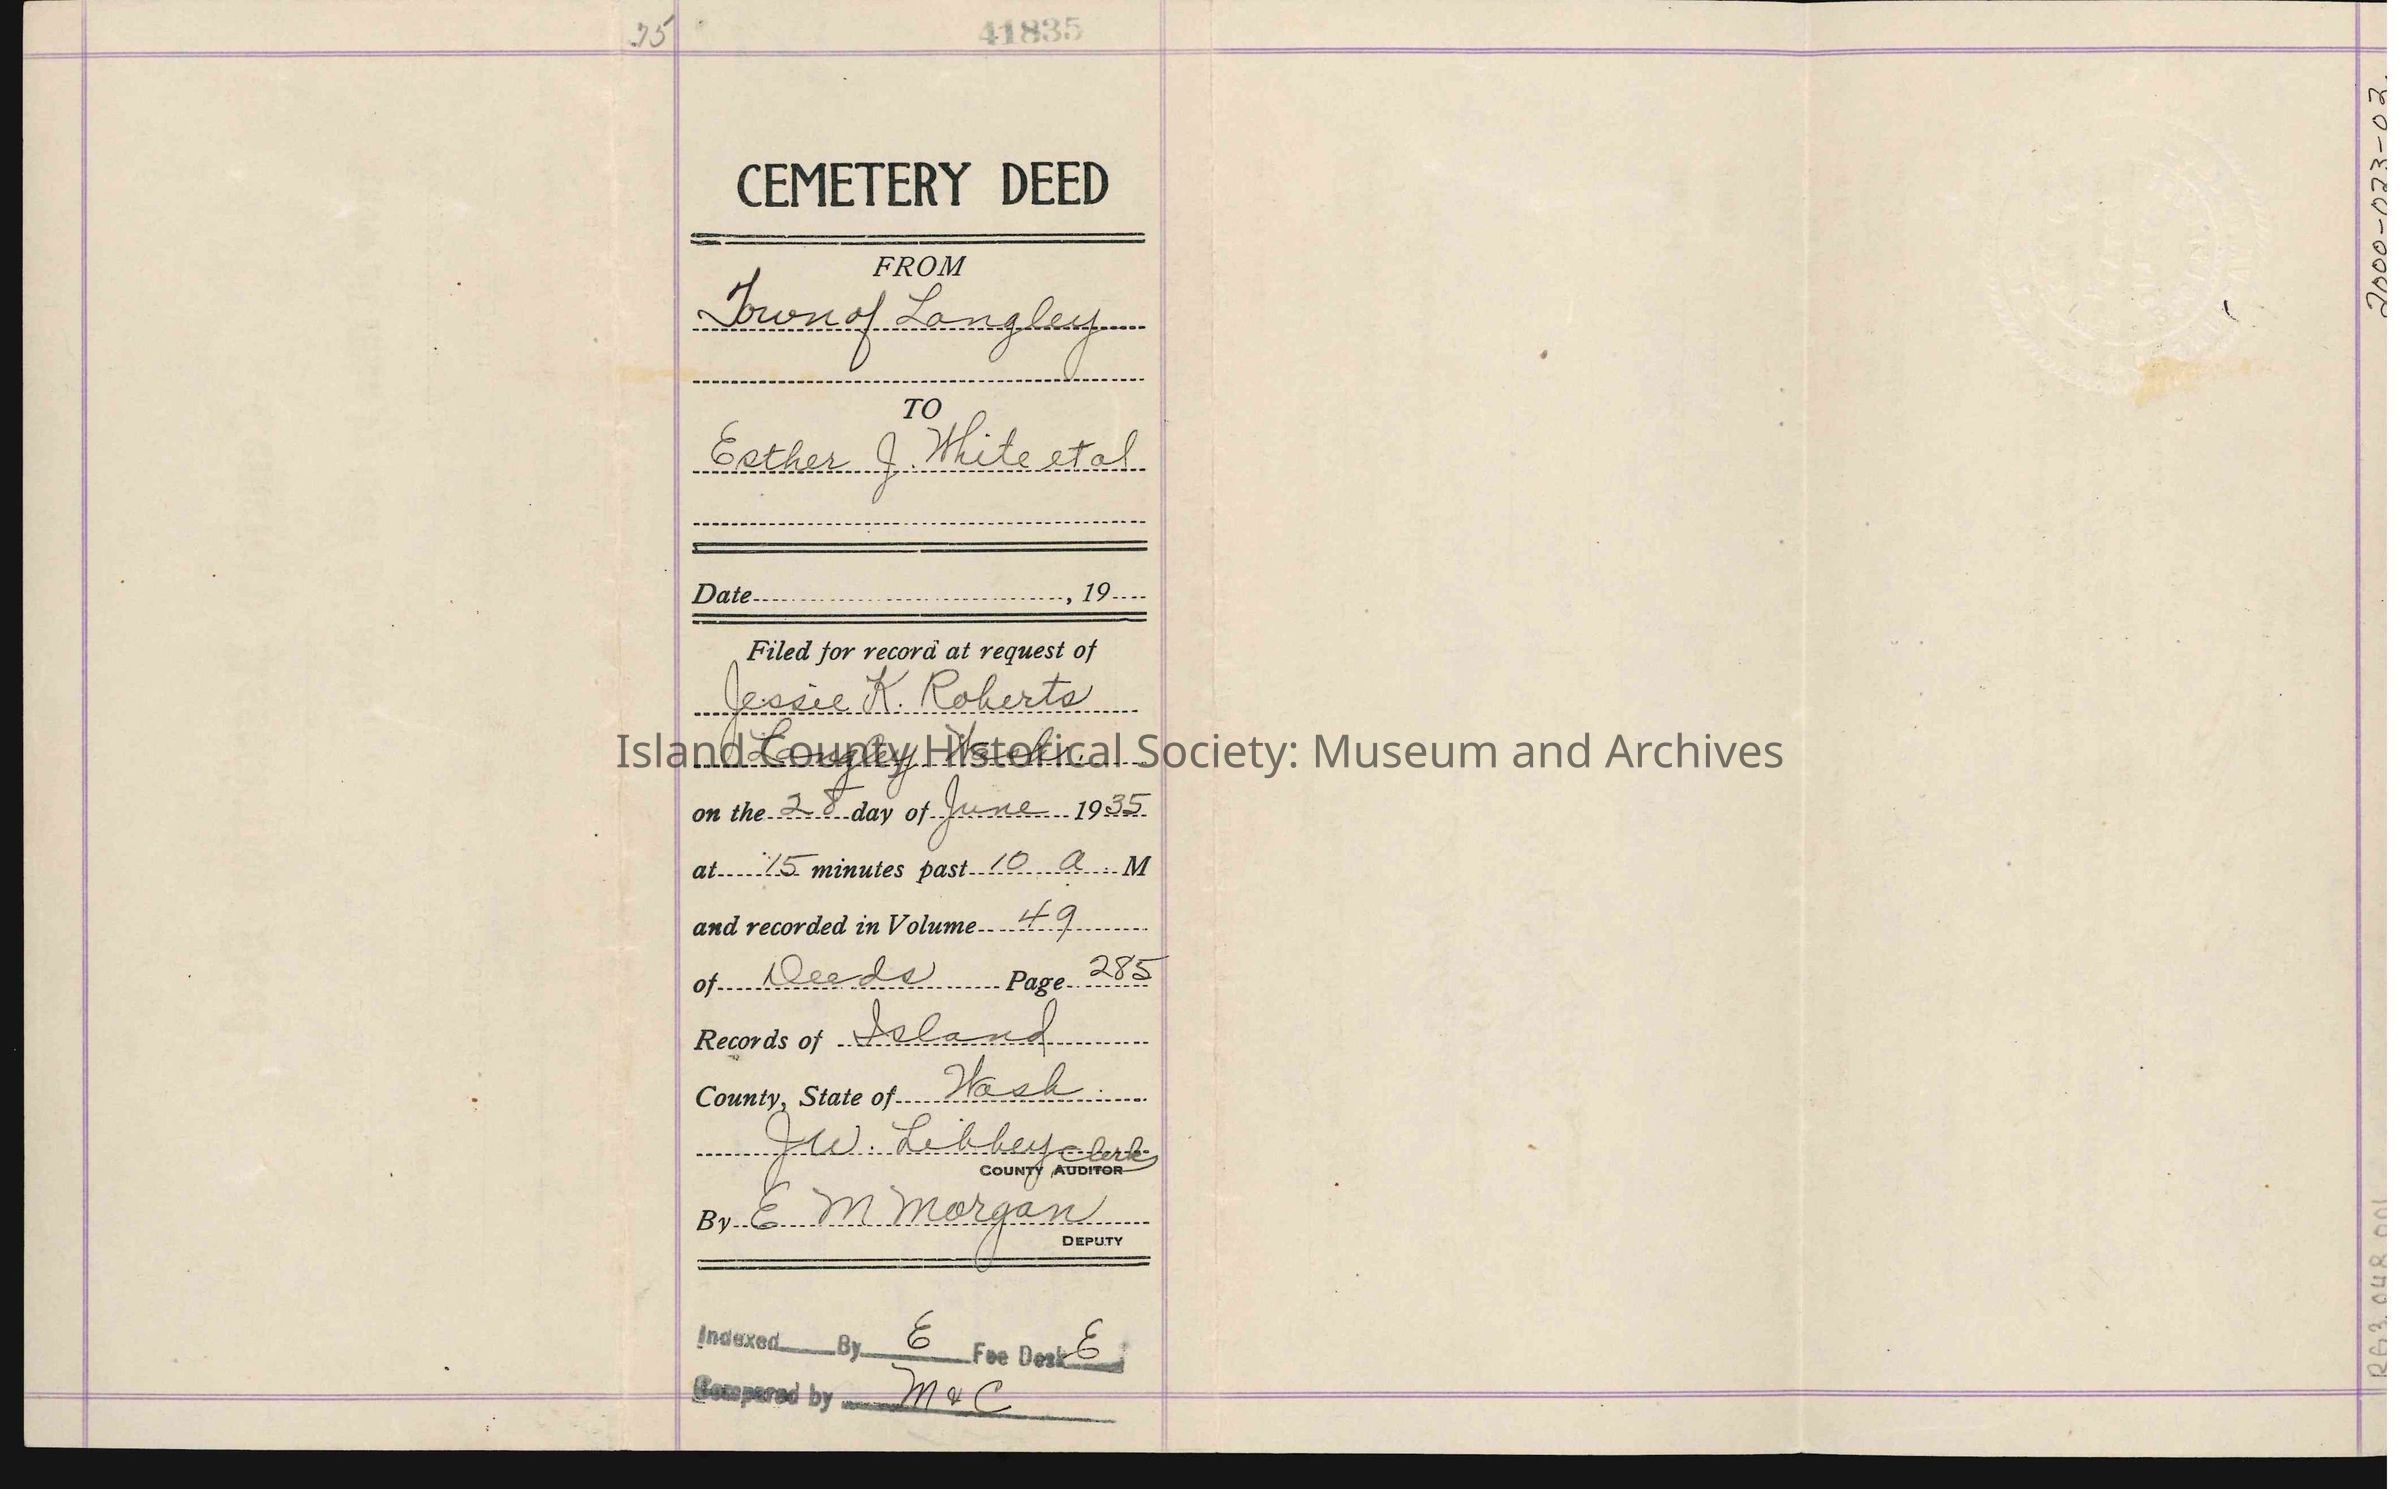 .75
41835
CEMETERY DEED
FROM
Town of Langley
TO
Esther J. White et al
Date , 19
Filed for record at request of
Jessie K. Roberts
Langley Wash.
Island County Historical Society: Museum and Archives
on the 28 day of June 1935
at 15 minutes past 10 a. M
and recorded in Volume 49
of Deeds Page 285
Records of Island
County, State of Wash.
J W. Libbey Clerk
COUNTY AUDITOR
By E M Morgan
DEPUTY
Indexed By E Fee Desk E
Compared by M & C
2000-023-02
RG3.048.001